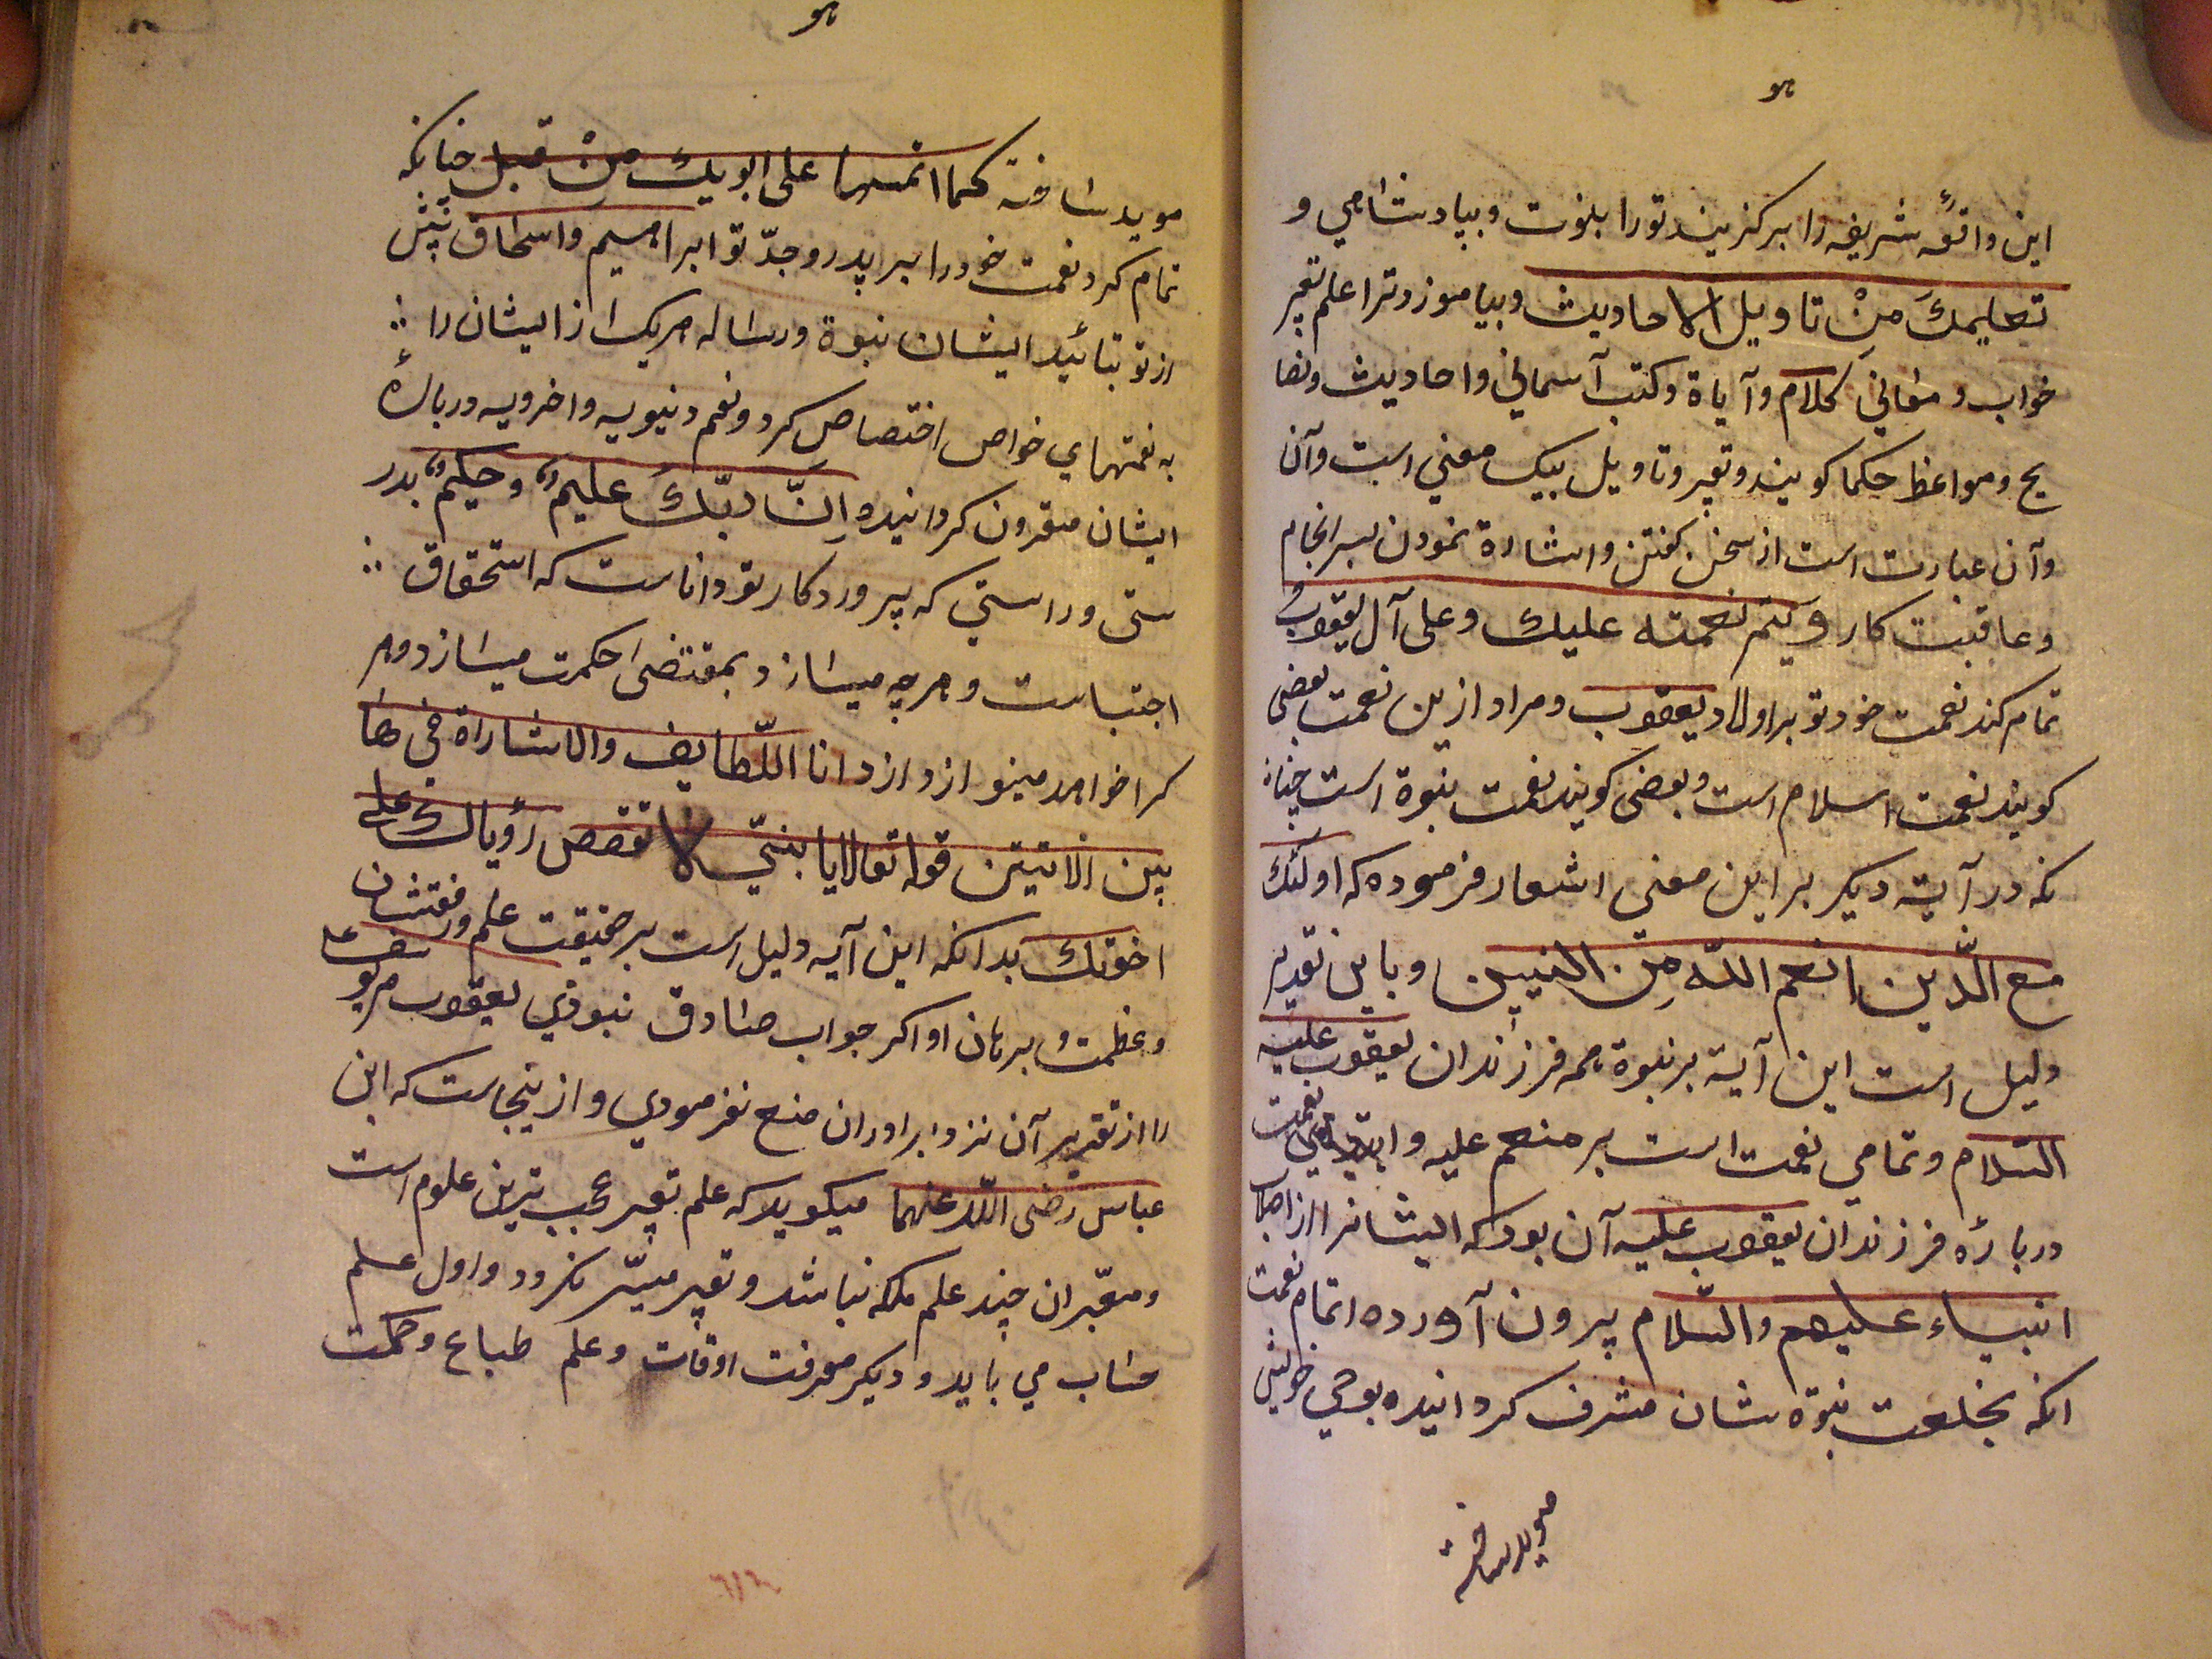 هو
این واقعهٔ شریفه را برکزیند تو را بنوت و بپادشاهي و
تعلیمكَ مِنْ تاویل الاحادیث و بیاموزد ترا علم تعبیر
خواب و معاني کلام و آیاة و کتب آسماني و احادیث و نصا
یح و مواعظ حکما کویند و تعبیر و تاویل بیک معني است و آن
وآن عبارت است از سخن کفتن و اشارة نمودن بسر انجام
و عاقبت کار و یتم نعمته علیك و علی آل یعقوب و
تمام کند نعمت خود تو بر اولاد یعقوب و مراد ازین نعمت بعضی
کویند نعمت اسلام است و بعضی کویند نعمت نبوة است چنا
نکه در آیة دیکر بر این معني اشعار فرموده که اولئك
مع الّذین انعم اللّه مِن النبیین و باین تقدیر
دلیل است این آیة بر نبوة همه فرزندان یعقوب علیه
السّلام و تمامي نعمت است بر منعم علیه و نعمت
دربارهٔ فرزندان یعقوب علیه آن بود که ایشانرا از اصلاب
انبیاء علیهم والسّلام بیرون آورده اتمام نعمت
انکه بخلعت نبوّة شان مشرف کردانیده بوحي خویش
موید ساخته
هو
موید ساخته کما اتمها علی ابویك مِنْ قبل چنانکه
تمام کرد نعمت خود را بر پدر و جدّ تو ابراهیم و اسحاق پیش
از تو بتائید ایشان نبوة و رساله هریک از ایشان را
به نعمتهاي خواص اختصاص کرد و نعم دنیویه و اخرویه دربارهٔ
ایشان مقرون کردانیده اِنَّ ربّكَ علیمٌ و حکیمٌ بدر
ستی و راستي که پروردکار تو داناست که استحقاق
اجتباست و هرچه میسازد بمقتضی احکمت میسازد و هر
کرا خواهد مینوازد از دانا اللّطایف و الاشاراة في هٰا
بین الاتیتین قوله تعالا یا بنيّ لا تقصص رؤیاك علی
اخوتك بدانکه این آیه دلیل است بر حقیقت علم و رفعتشان
و عظمت و برهان او اکر جواب صادق نبودي یعقوب مر یوسف علیه
را از تقریر آن نزد برادران منع نفرمودي و ازینجاست که ابن
عباس رضی اللّه عنهما میکوید که علم تعبیر عجب ترین علوم است
و معّبران چند علم ملکه نباشد و تعبیر میسّر نکردد و اول علم
حساب مي باید و دیکر معرفت اوقات و علم طباع و حکمت